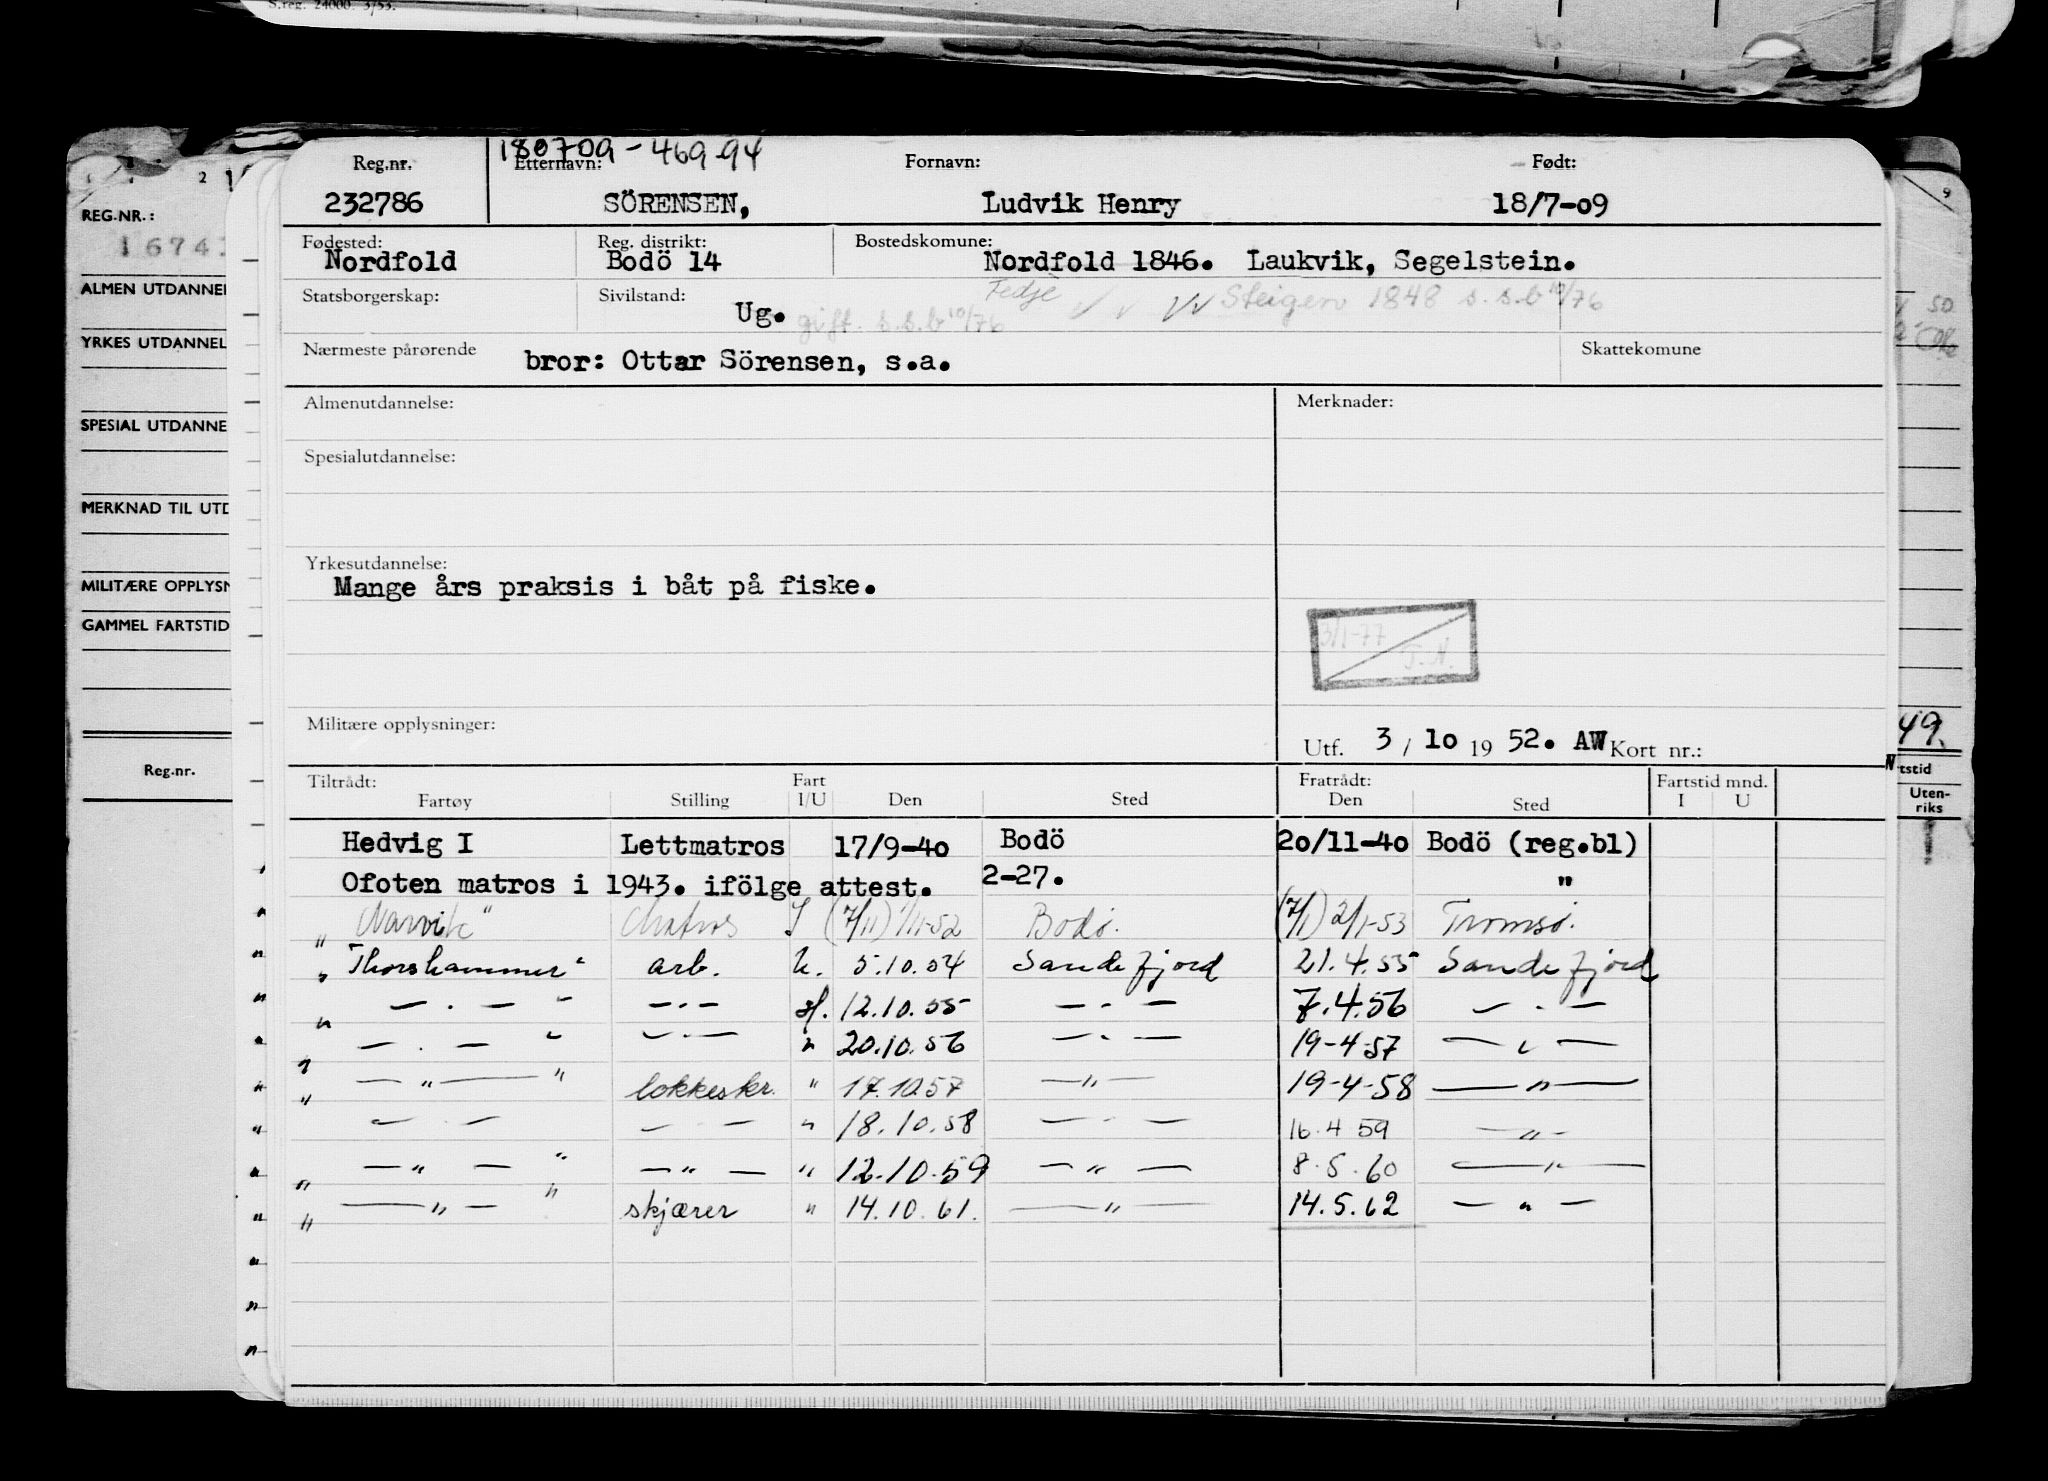 S.reg. 24000. 3/53.
180709-469-94
Reg.nr. Etternavn: Fornavn: Født:
232786 SÖRENSEN, Ludvik Henry 18/7-09
Fødested: Reg. distrikt: Bostedskomune:
Nordfold Bodö 14 Nordfold 1846. Laukvik, Segelstein.
Statsborgerskap: Sivilstand: Ug. gift. s.s.b 10/76 Fedje Steigen 1848 s.s.b 10/76
Nærmeste pårørende bror: Ottar Sörensen, s.a. Skattekomune
Almenutdannelse: Merknader:
Spesialutdannelse:
Yrkesutdannelse:
Mange års praksis i båt på fiske.
3/1-77
T.N.
Militære opplysninger:
Utf. 3/10 1952. AW Kort nr.:
Tiltrådt: Fart Fratrådt: Fartstid mnd.
Fartøy Stilling I/U Den Sted Den Sted I U
Hedvig I Lettmatros 17/9-40 Bodö 20/11-40 Bodö (reg.bl)
Ofoten matros i 1943. ifölge attest. 2-27. "
" Narvik" Matros I (7/11) 1/11-52 Bodö. (7/1) 2/1-53 Tromsö.
" Thorshammer" arb. U. 5.10.54 Sandefjord 21.4.55 Sandefjord
" — . — " — . — 12.10.55 — . — 7.4.56 — . —
" — . — " — . — " 20.10.56 — . — 19-4-57 — " —
" — " — " kokkeskr. " 17.10.57 — " — 19-4-58 — " —
— . — — . — " 18.10.58 — . — 16.4 59 — " —
" — " — " — " — " 12.10.59 — " — 8.5.60 — " —
" — " — " skjærer " 14.10.61. — " — 14.5.62 — " —
2
REG.NR.:
1674
ALMEN UTDANNEL
YRKES UTDANNEL
SPESIAL UTDANNE
MERKNAD TIL UTD
MILITÆRE OPPLYSN
GAMMEL FARTSTID
Reg.nr.
9
50
49.
rtstid
Uten-
riks